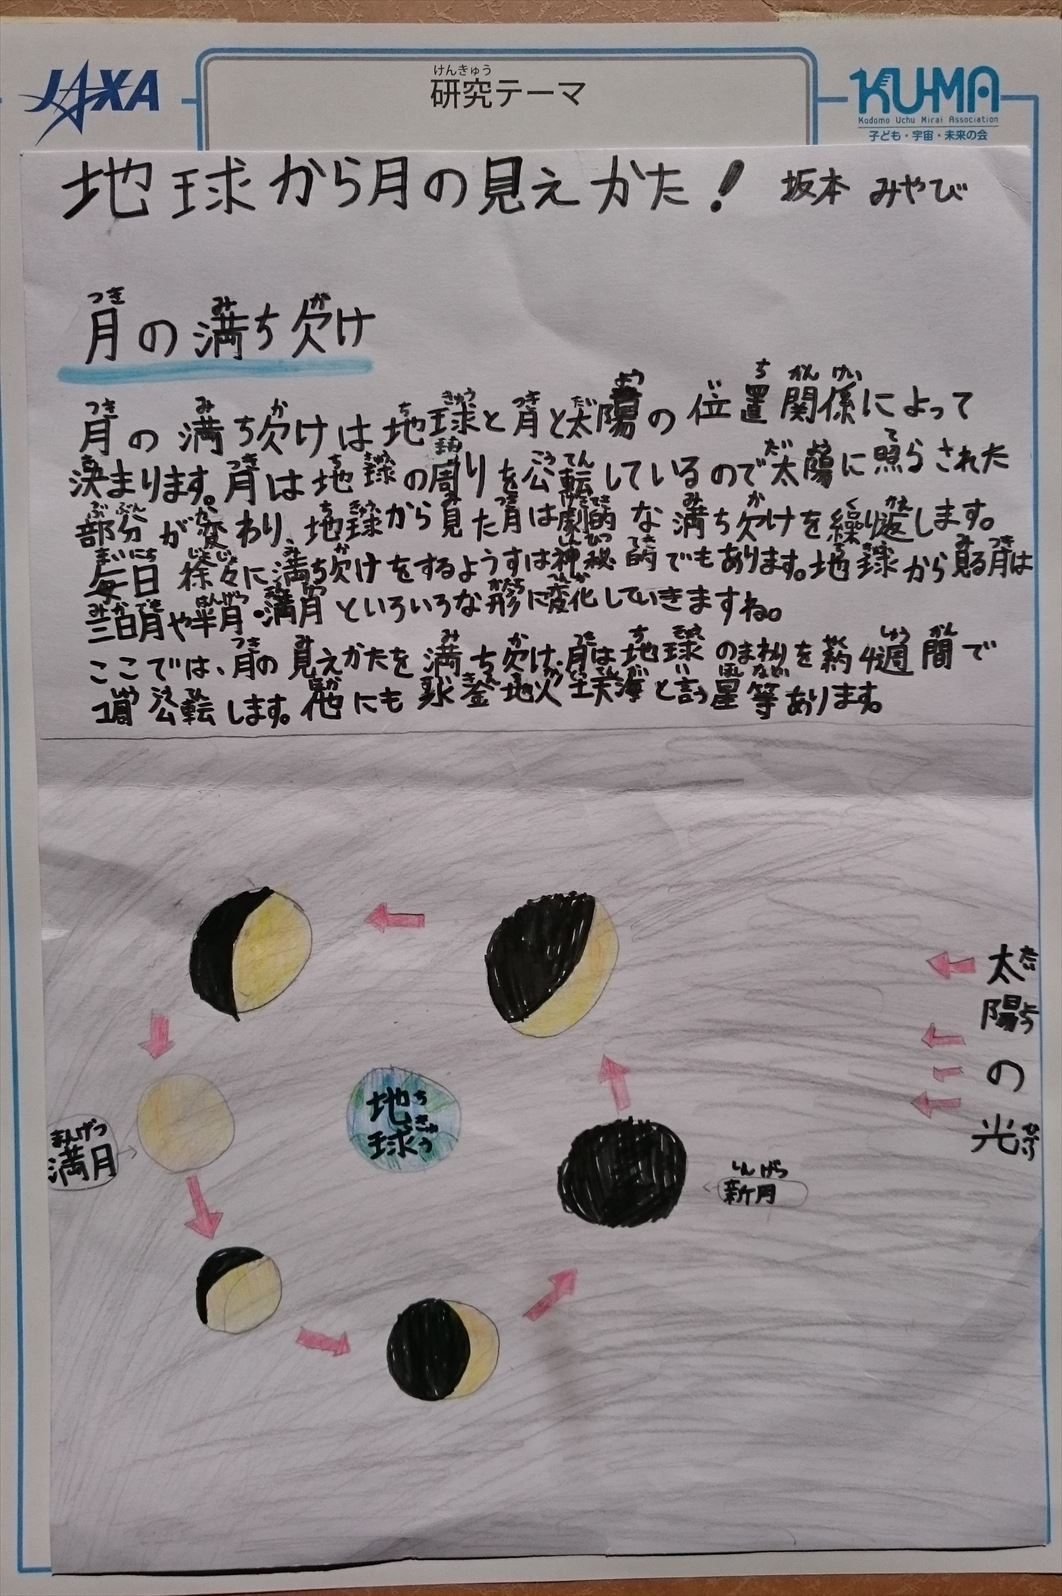 JAXA
けんきゅう
研究テーマ
KU-MA
Kodomo Uchu Mirai Association
子ども・宇宙・未来の会
地球から月の見えかた! 坂本 みやび
月の満ち欠け
月の満ち欠けは地球と月と太陽の位置関係によって
決まります。月は地球の周りを公転しているので太陽に照らされた
部分が変わり、地球から見た月は劇的な満ち欠けを繰り返します。
毎日徐々に満ち欠けをするようすは神秘的でもあります。地球から見る月は
三日月や半月・満月といろいろな形に変化していきますね。
ここでは、月の見えかたを満ち欠け、月は地球のまわりを約4週間で
1周公転します。他にも水金地火土天海と言う星等あります。
太陽の光
地球
満月
まんげつ
新月
しんげつ